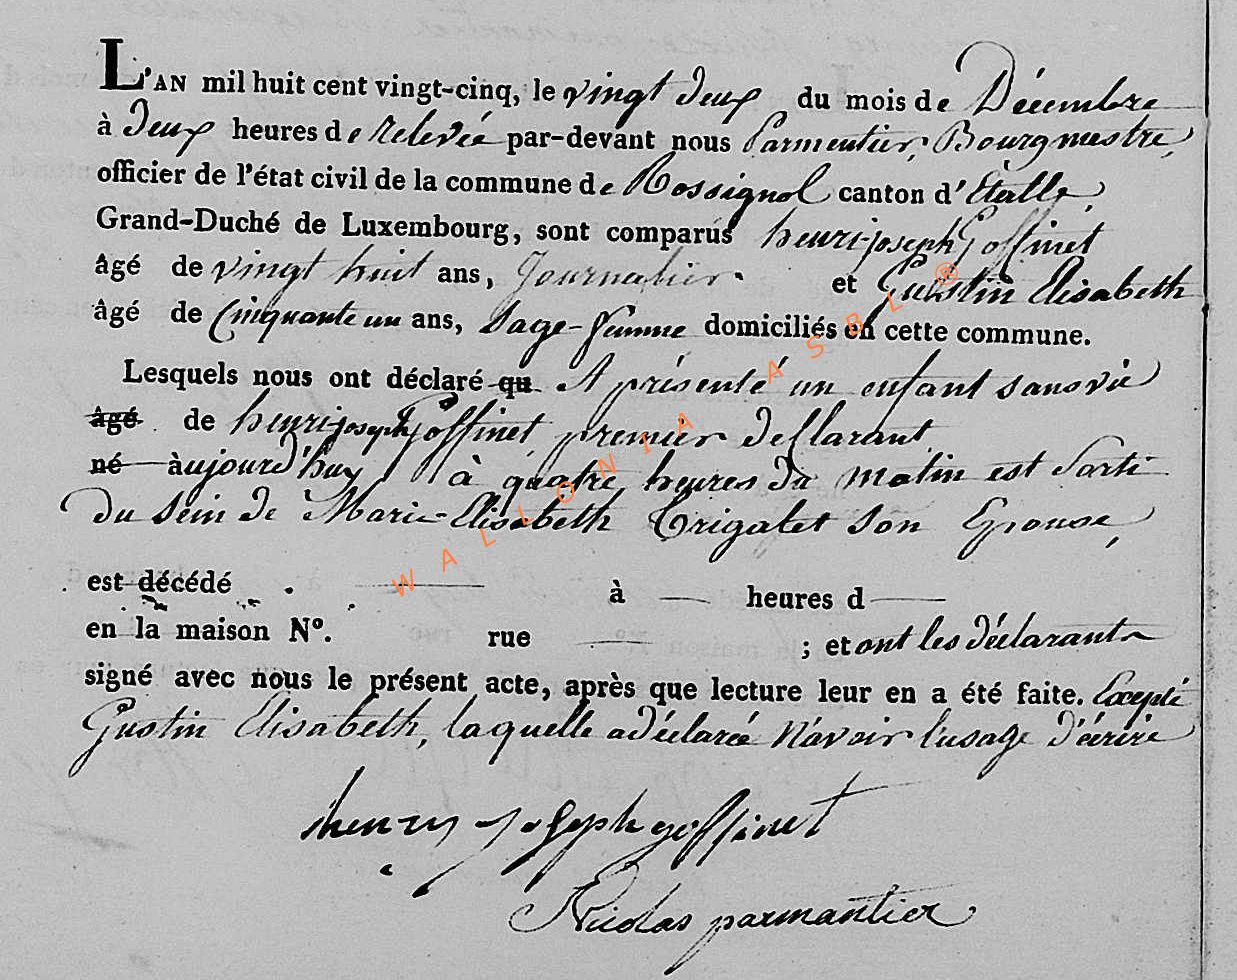 L'AN mil huit cent vingt-cinq, le vingt deux du mois de Décembre
à deux heures de relevée par-devant nous Parmentier, Bourgmestre,
officier de l'état civil de la commune de Rossignol canton d'Etalle,
Grand-Duché de Luxembourg, sont comparus henri-joseph Goffinet
âgé de vingt huit ans, Journalier et Gustin Elisabeth
âgé de Cinquante un ans, Sage-femme domiciliés en cette commune.
Lesquels nous ont déclaré qu A présenté un enfant sans vie
âgé de henri-joseph Goffinet premier déclarant
né aujourd'huy à quatre heures du matin est sorti
du sein de Marie-Elisabeth Trigalet son Epouse,
est décédé à heures d
en la maison N°. rue ; et ont les déclarants
signé avec nous le présent acte, après que lecture leur en a été faite. Excepté
Gustin Elisabeth, laquelle a déclarée n'avoir l'usage d'écrire
henry joseph goffinet
Nicolas parmantier
WALLONIA ASBL ®